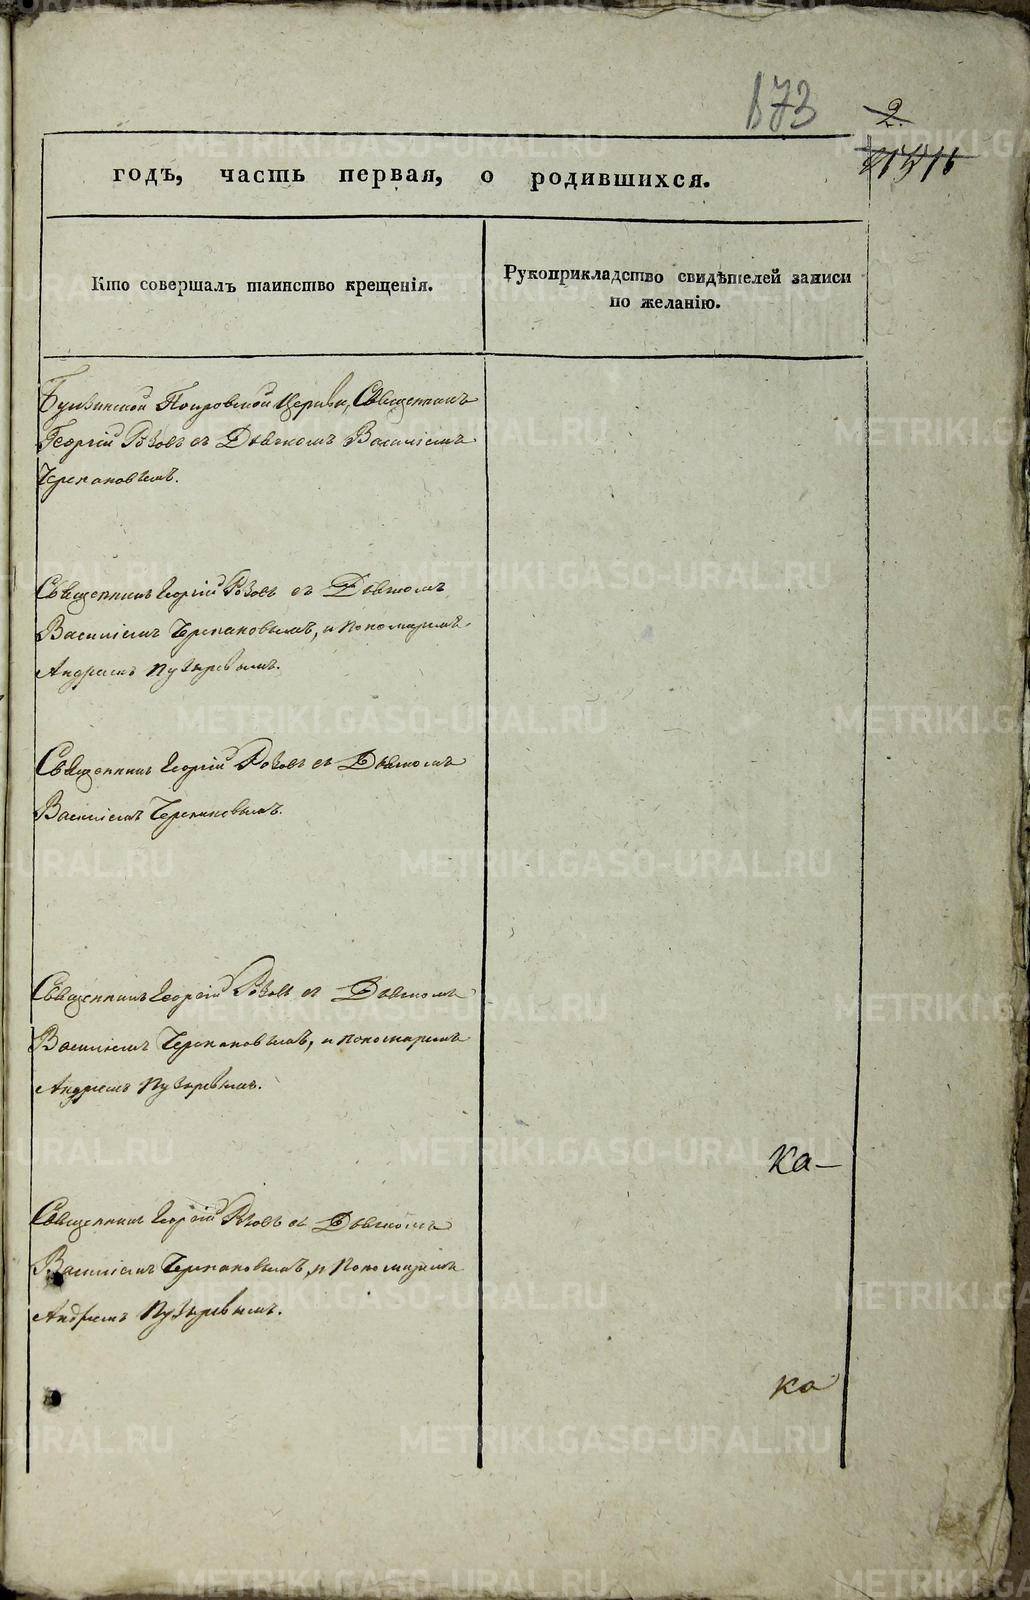 873
2.
годъ, часть первая, о родившихся.
Кто совершалъ таинство крещенія.
Рукоприкладство свидѣтелей записи
по желанію.
Покровской Церкви, Священникъ
Георгій съ Дьячкомъ Василіемъ
Черепановымъ.
Священникъ Георгій съ Дьячкомъ
Василіемъ Черепановымъ, и пономаремъ
Андреемъ Пузыревымъ.
Священникъ Георгій съ Дьячкомъ
Василіемъ Черепановымъ.
Священникъ Георгій съ Дьячкомъ
Василіемъ Черепановымъ, и пономаремъ
Андреемъ Пузыревымъ.
ка-
Священникъ Георгій съ Дьячкомъ
Василіемъ Черепановымъ, и пономаремъ
Андреемъ Пузыревымъ.
ка
METRIKI.GASO-URAL.RU